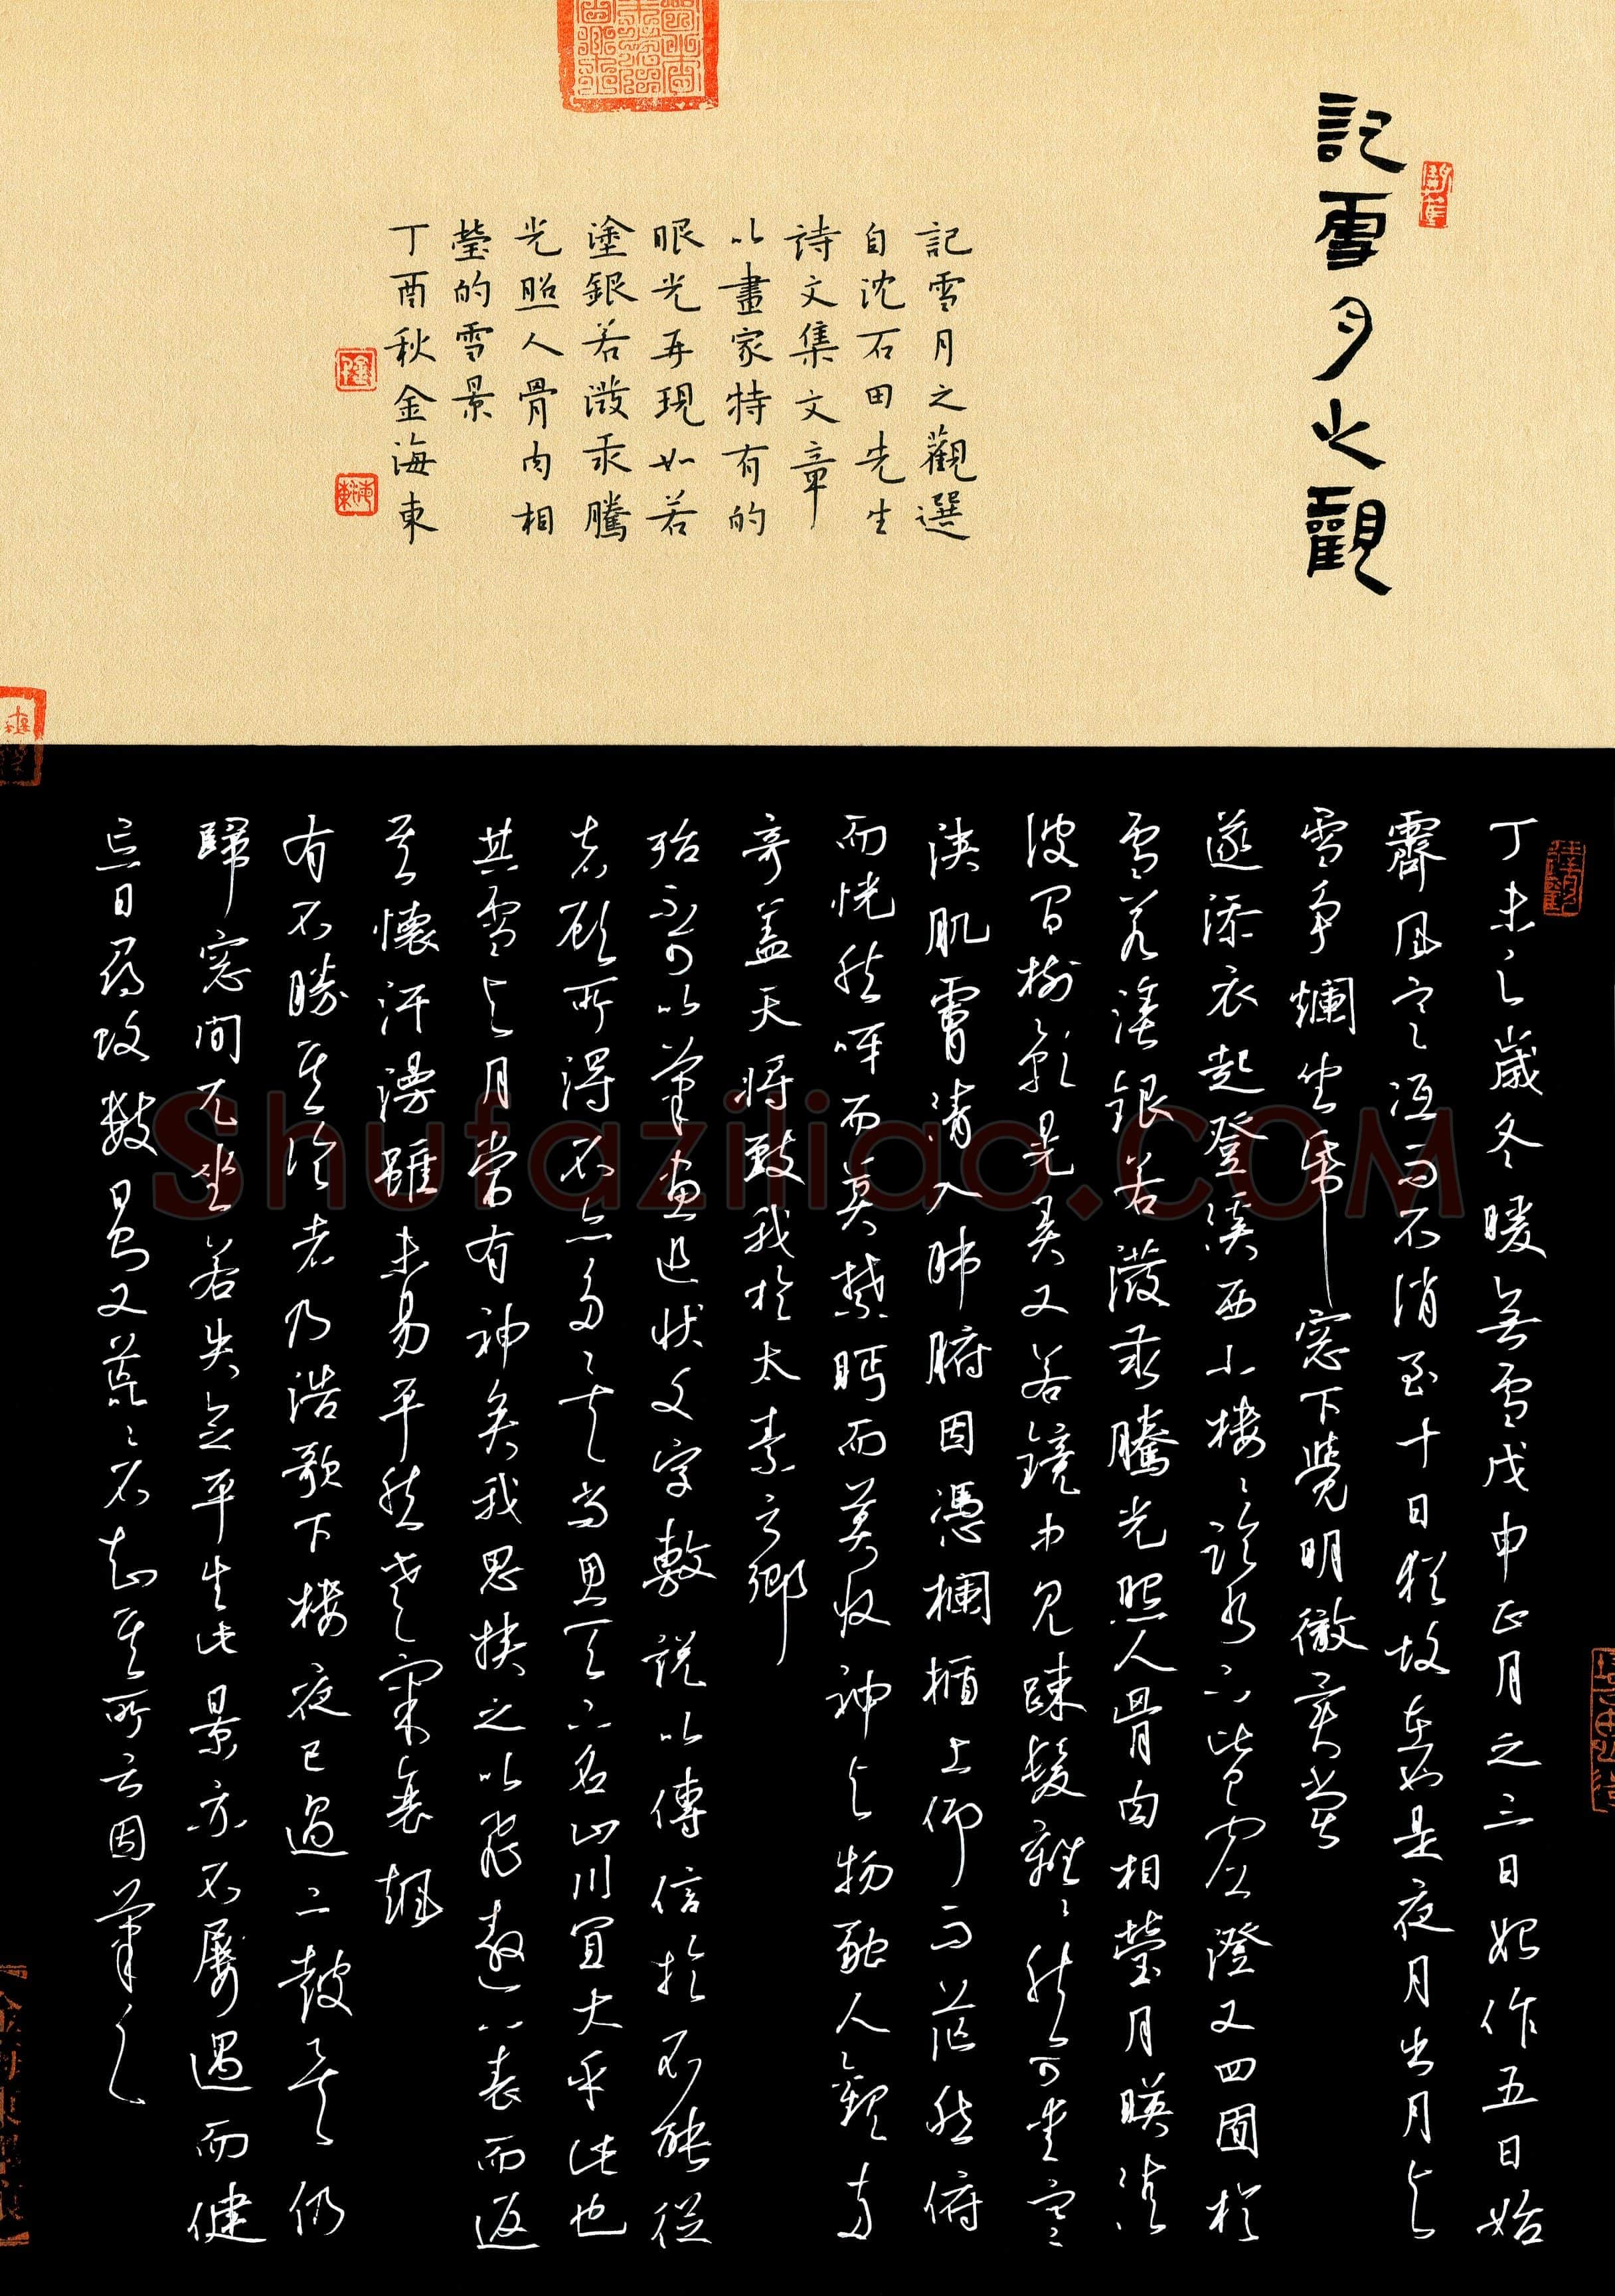 記雪月之觀
記雪月之觀選
自沈石田先生
詩文集文章
以畫家特有的
眼光再現如若
塗銀若潑汞騰
光照人骨肉相
瑩的雪景
丁酉秋金海東
丁未之歲冬暖無雪戊申正月之三日始作五日始
霽風寒沍而不消至十日猶故在也是夜月出月與
雪爭爛坐紙窗下覺明徹異常
遂添衣起登溪西小樓樓臨水下皆虛澄又四圍於
雪若塗銀若潑汞騰光照人骨肉相瑩月映清
波間樹影晃弄又若鏡中見疏髮離離然可愛寒
浹肌膚清入肺腑因憑欄楯上仰而茫然俯
而恍然呀而莫禁眄而莫收神與物融人觀兩
奇蓋天將致我於太素之鄉
殆不可以筆畫追狀文字敷說以傳信於不能從
者顧所得不亦多矣尚思天下名山川宜大乎此也
其雪與月當有神矣我思挾之以飛遨遊八表而返
其懷汗漫雖未易平然老氣衰颯
有不勝其冷者乃浩歌下樓夜已過二鼓矣仍
歸窗間兀坐若失念平生此景亦不屢遇而健
忘日尋改數日則又荒荒不知其所云因筆之
Shufaziliao.COM